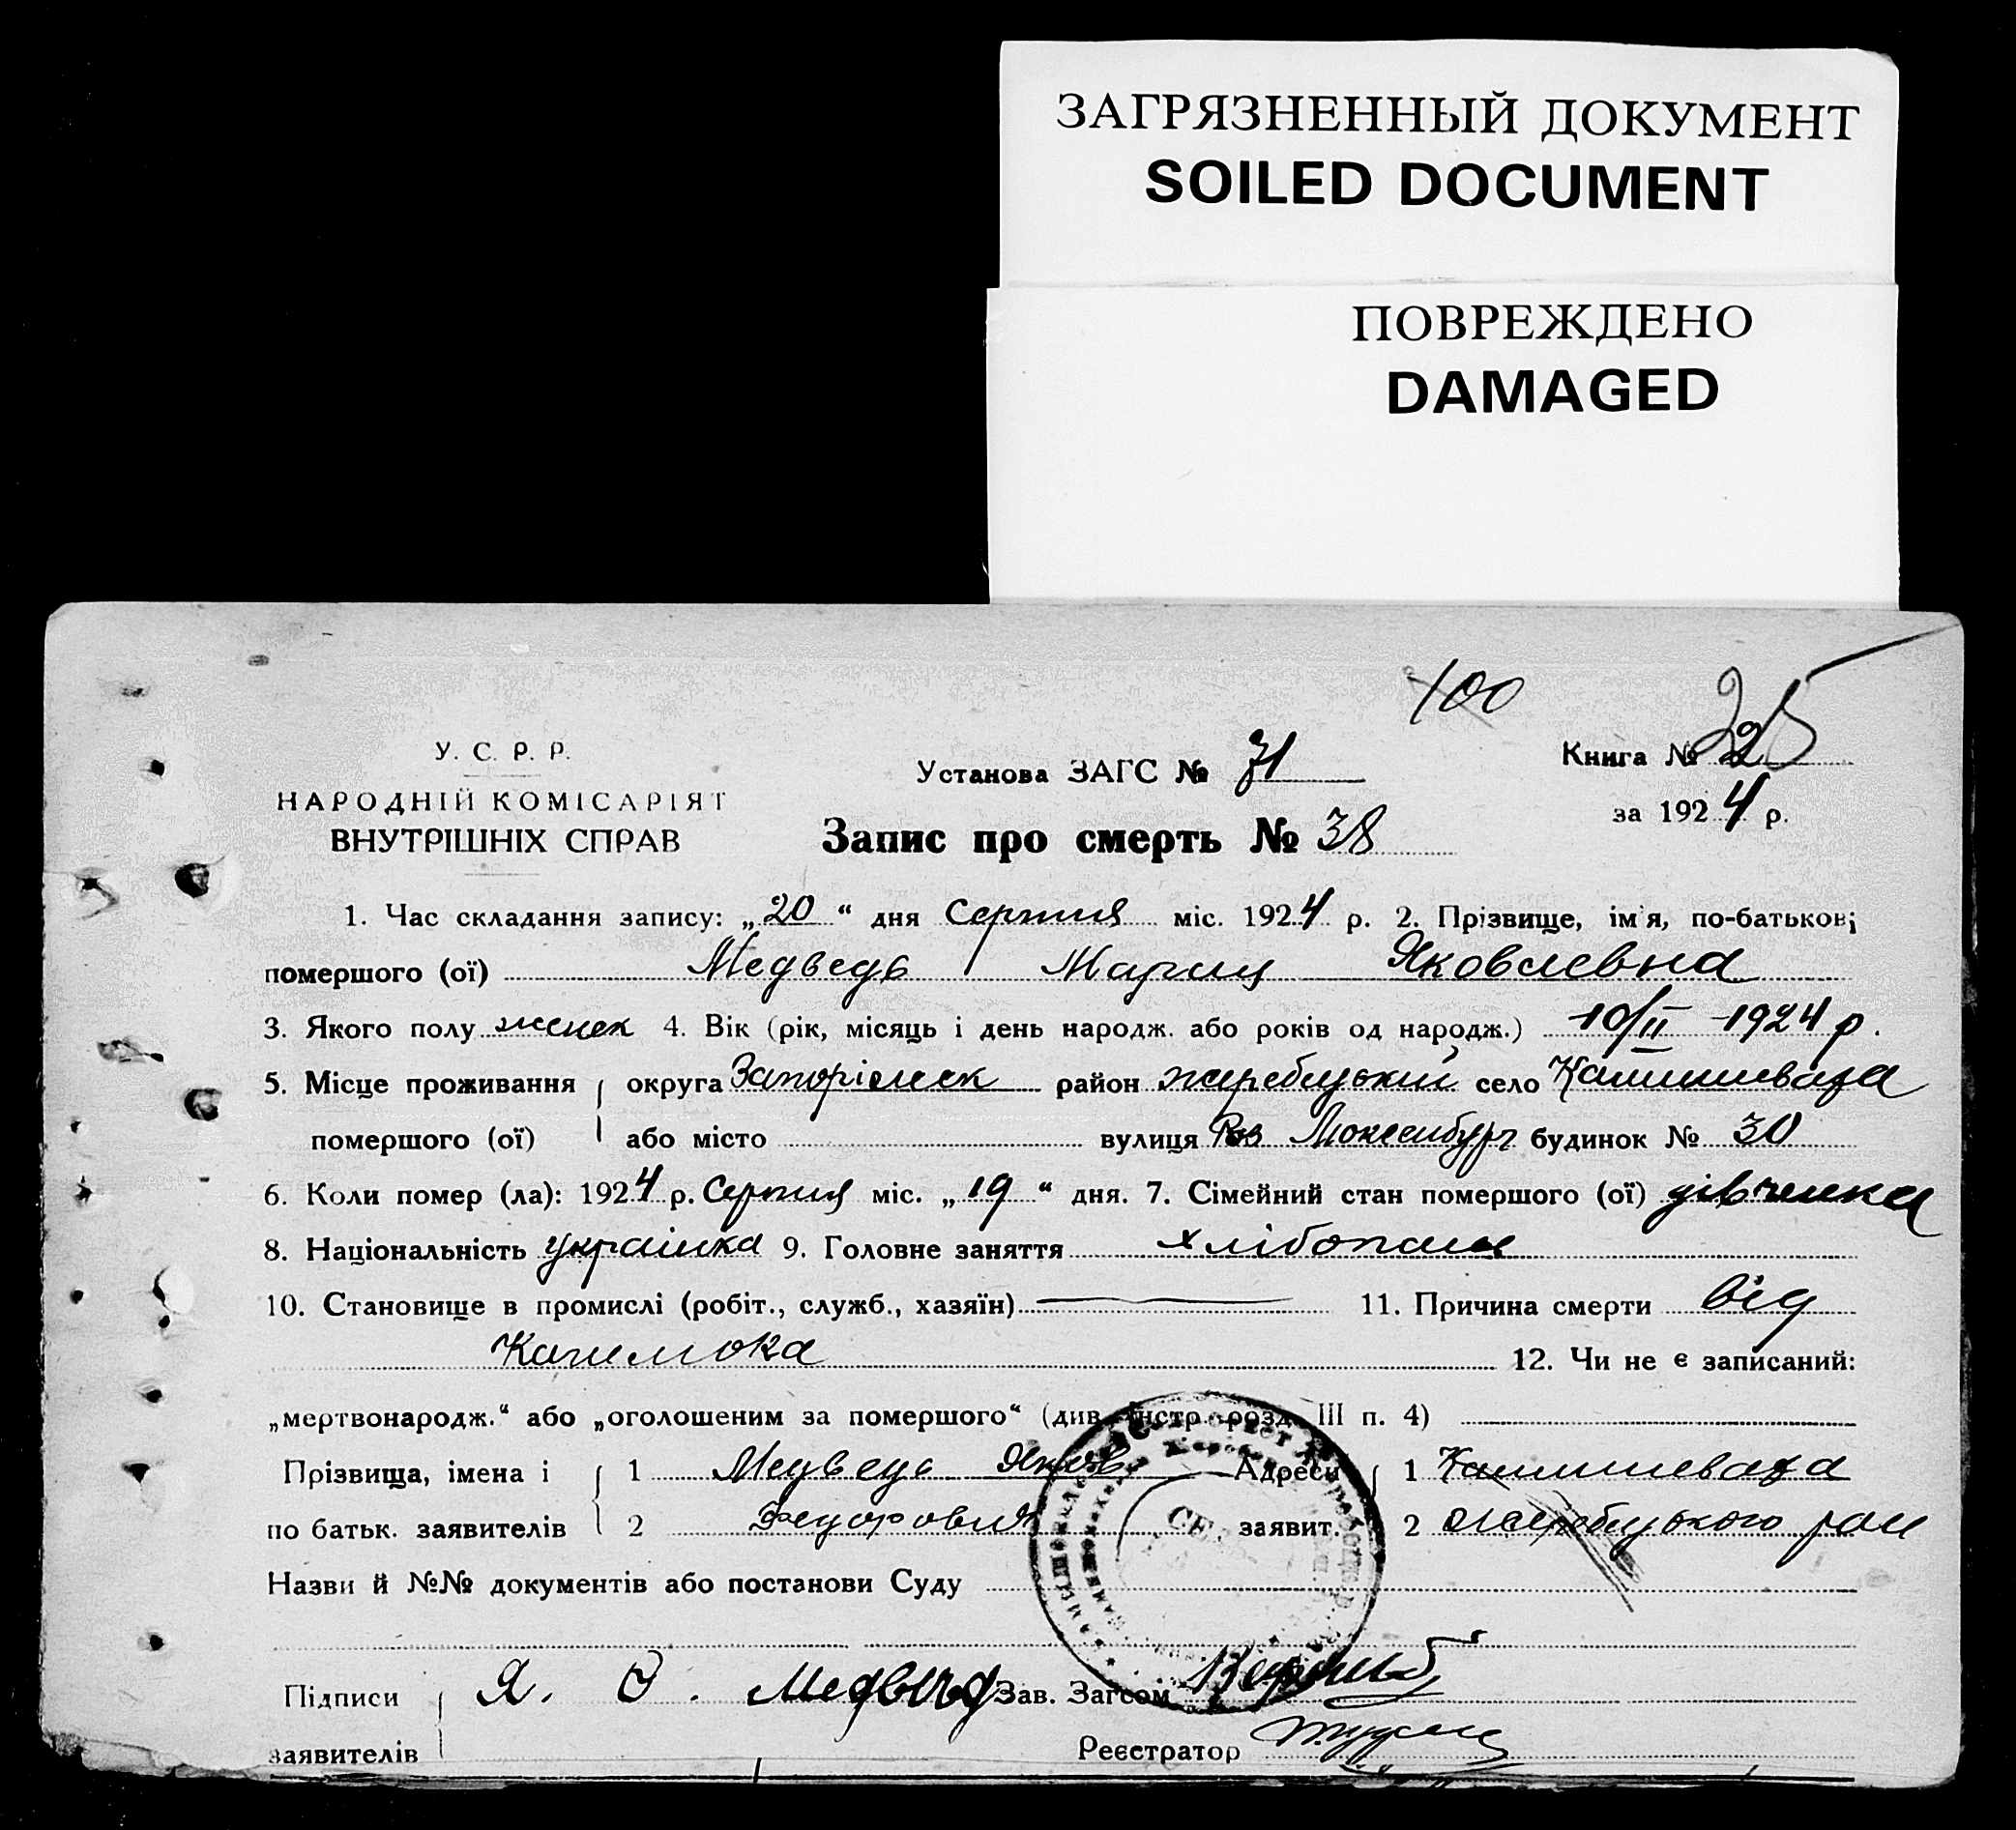 ЗАГРЯЗНЕННЫЙ ДОКУМЕНТ
SOILED DOCUMENT
ПОВРЕЖДЕНО
DAMAGED
100
25
У. С. Р. Р.
НАРОДНІЙ КОМІСАРІЯТ
ВНУТРІШНІХ СПРАВ
Установа ЗАГС № 71
Книга № 2
за 1924 р.
Запис про смерть № 38
1. Час складання запису: „20“ дня Серпня міс. 1924 р. 2. Прізвище, ім'я, по-батькові
помершого (ої) Медведь Мария Яковлевна
3. Якого полу женск 4. Вік (рік, місяць і день народж. або років од народж.) 10/II 1924 р.
5. Місце проживання округа Запоріжск район жеребцький село Камишеваха
помершого (ої) або місто вулиця будинок № 30
6. Коли помер (ла): 1924 р. Серпня міс. „19“ дня. 7. Сімейний стан помершого (ої) дівчинка
8. Національність українка 9. Головне заняття
10. Становище в промислі (робіт., служб., хазяїн) — 11. Причина смерти від
12. Чи не є записаний:
„мертвонародж.“ або „оголошеним за помершого“ (див. Інстр. розд. III п. 4)
Прізвища, імена і 1 Медведь Яков Адреси 1 Камишеваха
по батьк. заявителів 2 Федорович заявит. 2 жеребцького рай
Назви й №№ документів або постанови Суду
Підписи Я. Ф. Медведь Зав. Загсом
заявителів Реєстратор